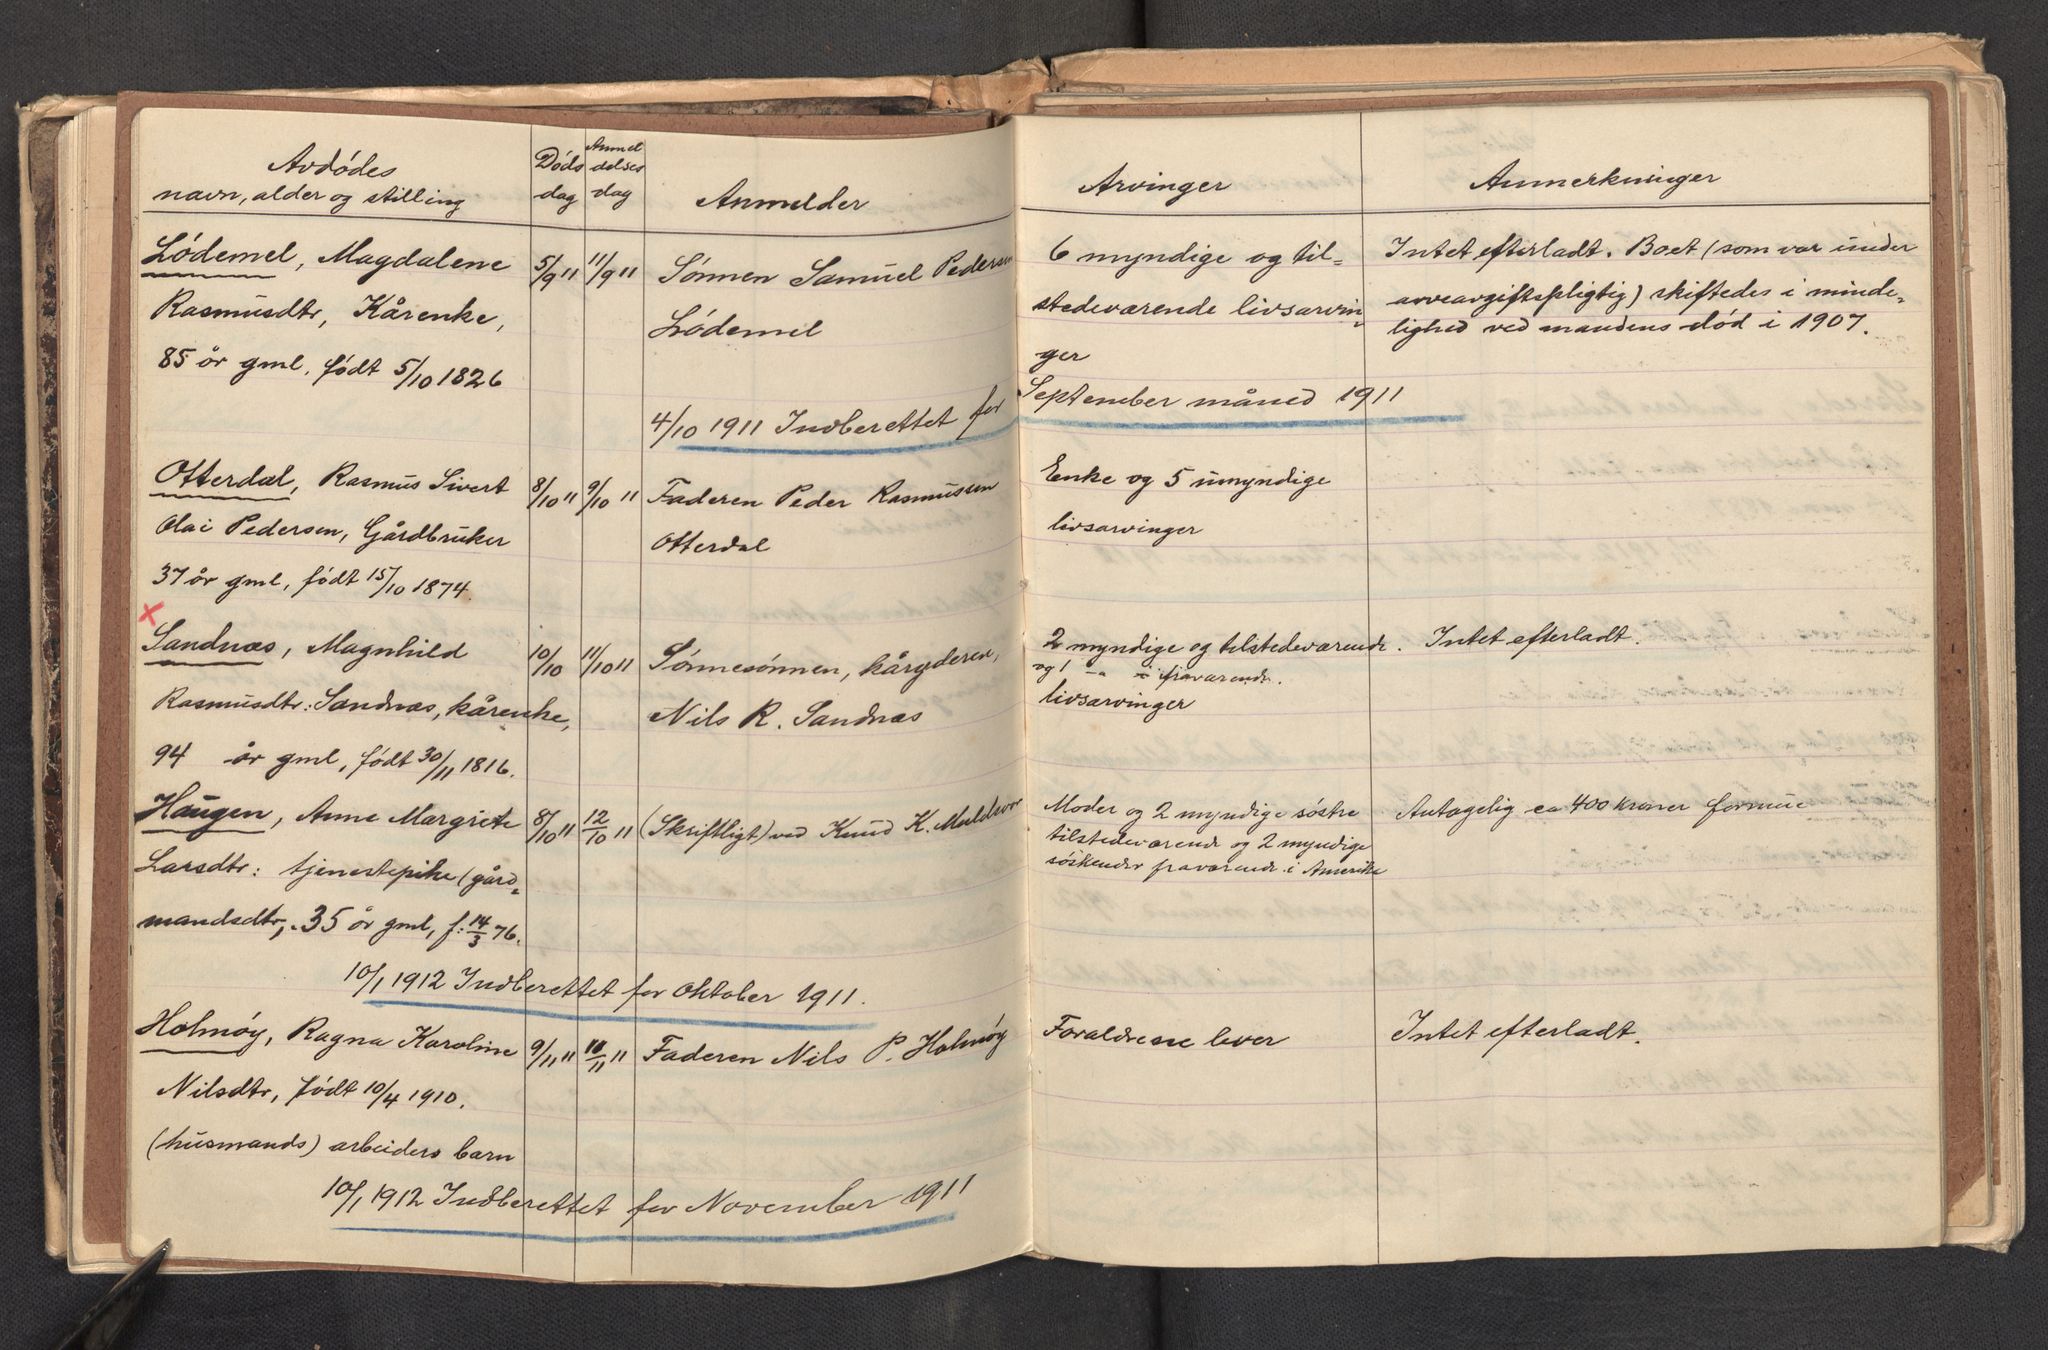 Avdödes
navn, alder og stilling
Döds
dag
Anmel
delses
dag
Anmelder
Arvinger
Anmerkninger
Lödemel, Magdalene
Rasmusdtr, Kårenke,
85 år gml, födt 5/10 1826
5/9 11
11/9 11
Sönnen Samuel Pedersen
Lödemel
6 myndige og til-
stedeværende livsarvin-
ger
Intet efterladt. Boet (som var under
arveavgiftspligtig) skiftedes i minde-
lighed ved mandens död i 1907.
4/10 1911 Indberettet for September måned 1911
Otterdal, Rasmus Sivert
Olai Pedersen, Gårdbruker
37 år gml, födt 15/10 1874.
8/10 11
9/10 11
Faderen Peder Rasmussen
Otterdal
Enke og 5 umyndige
livsarvinger
x
Sandnæs, Magnhild
Rasmusdtr: Sandnæs, kårenke,
94 år gml, födt 30/11 1816.
10/10
11/10 11
Sönnesönnen, kåryderen,
Nils R. Sandnæs
2 myndige og tilstedeværende.
og 1 -"- " fraværende.
livsarvinger
Intet efterladt.
Haugen, Anne Margrete
Larsdtr: tjenestepike (gård-
mandsdtr, 35 år gml, f: 14/3 76.
8/10 11
12/10 11
(Skriftligt) ved Knud K. Muldsvor
Moder og 2 myndige söstre
tilstedeværende og 2 myndige
söskender fraværende i Amerika
Antagelig ca 400 kroner formue
10/1 1912 Indberettet for Oktober 1911.
Holmöy, Ragna Karoline
Nilsdtr, födt 10/4 1910.
(husmands) arbeiders barn
9/11 11
10/11 11
Faderen Nils P. Holmöy
Foraldrene lever
Intet efterladt.
10/1 1912 Indberettet for November 1911